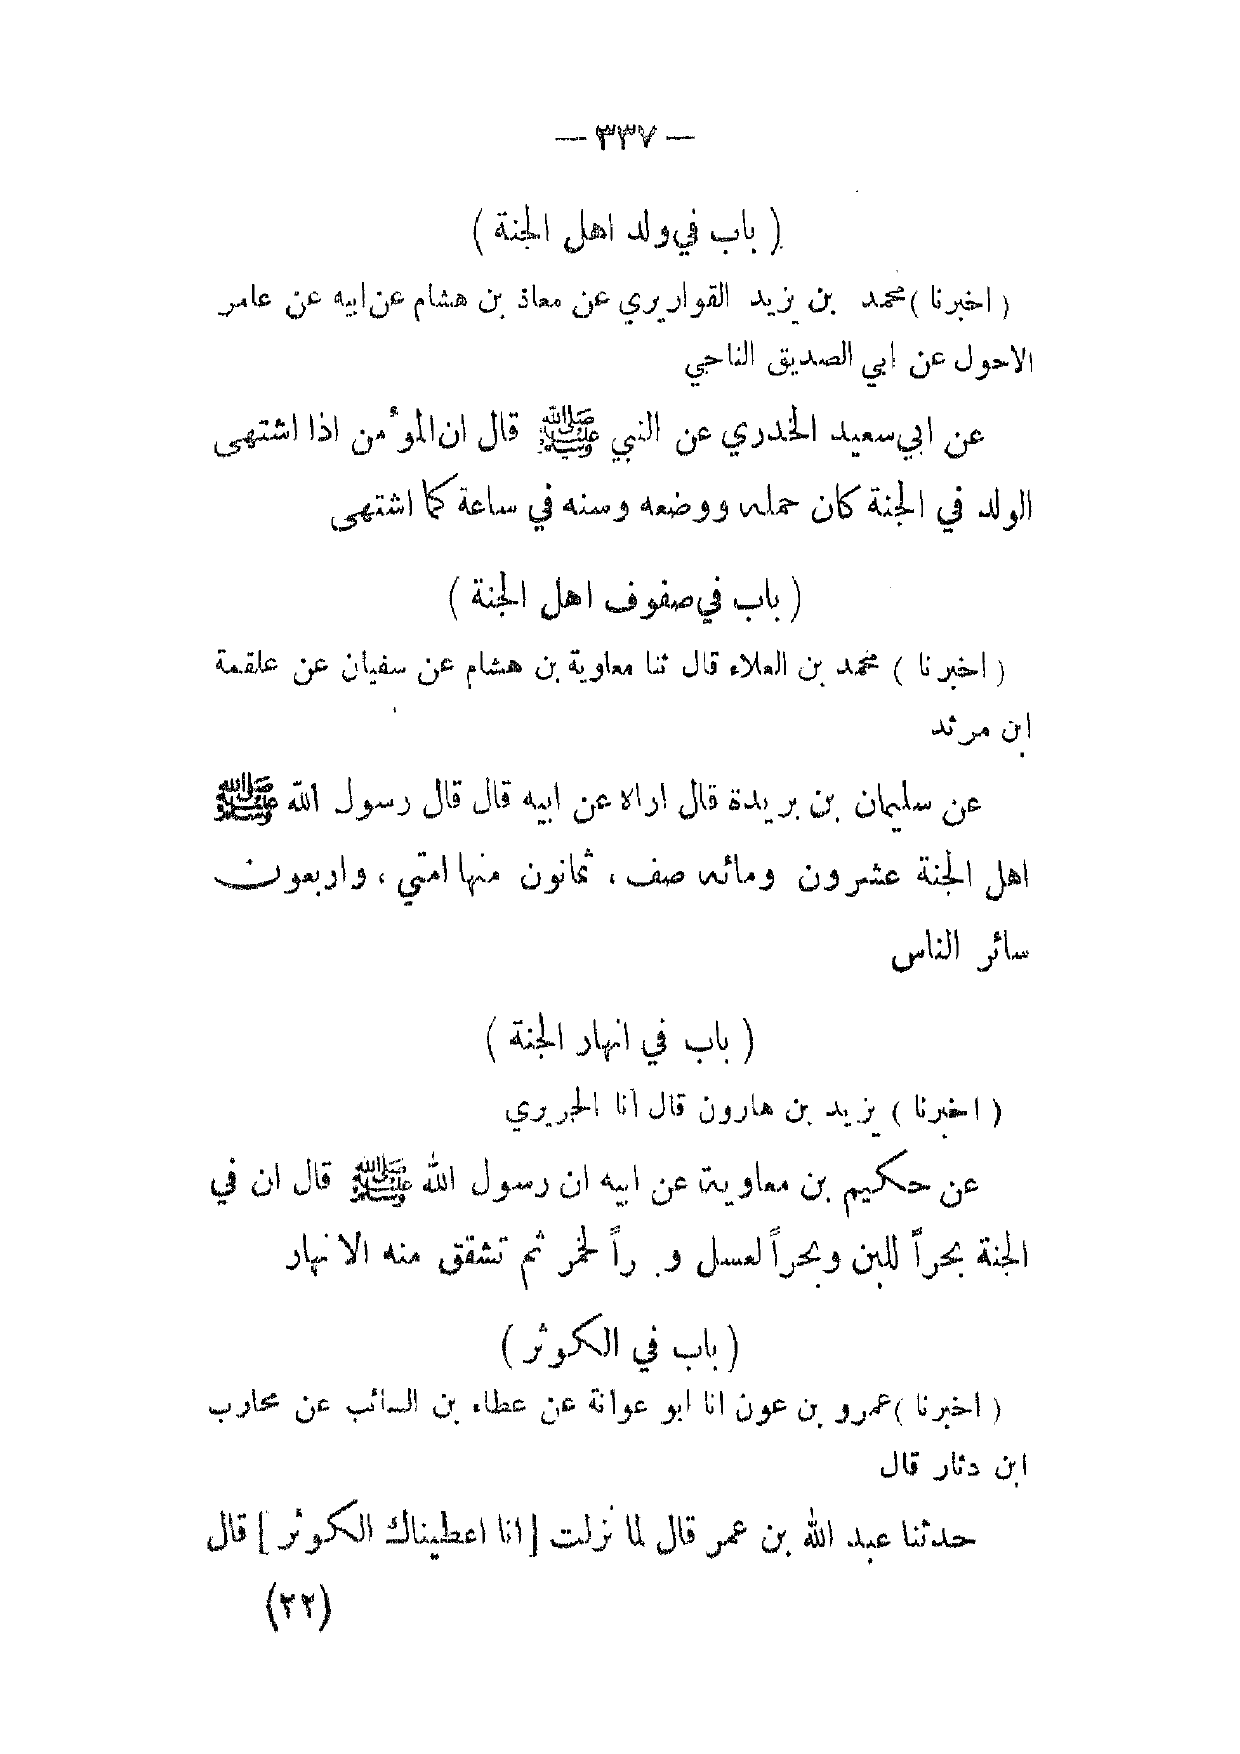 — ٣٣٧ —
( باب في ولد اهل الجنة )
( اخبرنا ) محمد بن يزيد القواريري عن معاذ بن هشام عن ابيه عن عامر
الاحول عن ابي الصديق الناجي
عن ابي سعيد الخدري عن النبي ﷺ قال ان المؤمن اذا اشتهى
الولد في الجنة كان حمله ووضعه وسنه في ساعة كما اشتهى
( باب في صفوف اهل الجنة )
( اخبرنا ) محمد بن العلاء قال ثنا معاوية بن هشام عن سفيان عن علقمة
ابن مرثد
عن سليمان بن بريدة قال اراه عن ابيه قال قال رسول الله ﷺ
اهل الجنة عشرون ومائه صف ، ثمانون منها امتي ، واربعون
سائر الناس
( باب في انهار الجنة )
( اخبرنا ) يزيد بن هارون قال انا الجريري
عن حكيم بن معاوية عن ابيه ان رسول الله ﷺ قال ان في
الجنة بحراً للبن وبحراً لعسل و راً لخمر ثم تشقق منه الانهار
( باب في الكوثر )
( اخبرنا ) عمرو بن عون انا ابو عوانة عن عطاء بن السائب عن محارب
ابن دثار قال
حدثنا عبد الله بن عمر قال لما نزلت [ انا اعطيناك الكوثر ] قال
(٢٢)